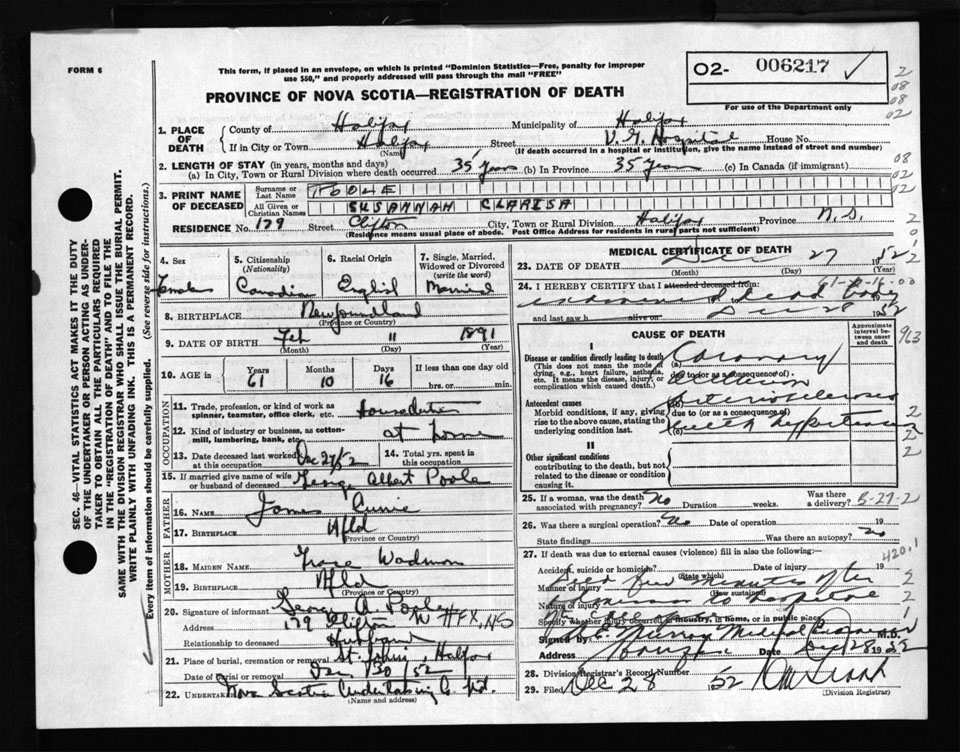 FORM 6
This form, if placed in an envelope, on which is printed "Dominion Statistics—Free, penalty for improper
use $50," and properly addressed will pass through the mail "FREE"
O2- 006217 ✓
For use of the Department only
PROVINCE OF NOVA SCOTIA—REGISTRATION OF DEATH
1. PLACE OF DEATH
County of Halifax Municipality of Halifax
If in City or Town Halifax Street V.G. Hospital House No.
(Name) (If death occurred in a hospital or institution, give the name instead of street and number)
2. LENGTH OF STAY (in years, months and days)
(a) In City, Town or Rural Division where death occurred 35 Years (b) In Province 35 Years (c) In Canada (if immigrant)
3. PRINT NAME OF DECEASED
Surname or Last Name POOLE
All Given or Christian Names SUSANNAH CLARISA
RESIDENCE No. 179 Street Clifton City, Town or Rural Division Halifax Province N.S.
(Residence means usual place of abode. Post Office Address for residents in rural parts not sufficient)
4. Sex Female
5. Citizenship (Nationality) Canadian
6. Racial Origin English
7. Single, Married, Widowed or Divorced (write the word) Married
8. BIRTHPLACE Newfoundland
(Province or Country)
9. DATE OF BIRTH Feb 11 1891
(Month) (Day) (Year)
10. AGE in Years 61 Months 10 Days 16 If less than one day hrs. or min.
OCCUPATION
11. Trade, profession, or kind of work as spinner, teamster, office clerk, etc. Houseduties
12. Kind of industry or business, as cotton-mill, lumbering, bank, etc. at home
13. Date deceased last worked at this occupation Dec 27/52
14. Total yrs. spent in this occupation
15. If married give name of wife or husband of deceased George Albert Poole
FATHER
16. NAME James
17. BIRTHPLACE Nfld
(Province or Country)
MOTHER
18. MAIDEN NAME Grace
19. BIRTHPLACE Nfld
(Province or Country)
20. Signature of informant George A. Poole
Address 179 Clifton HFX, NS
Relationship to deceased Husband
21. Place of burial, cremation or removal St. Halifax
Date of burial or removal Dec 30/52
22. UNDERTAKER Nova Scotia Undertaking Co. Ltd.
(Name and address)
MEDICAL CERTIFICATE OF DEATH
23. DATE OF DEATH 27 1952
(Month) (Day) (Year)
24. I HEREBY CERTIFY that I attended deceased from:
dead body
and last saw h alive on 1952
CAUSE OF DEATH
Approximate interval between onset and death
I
Disease or condition directly leading to death
(This does not mean the mode of dying, e.g., heart failure, asthenia, etc. It means the disease, injury, or complication which caused death.)
(a) Coronary
due to (or as a consequence of)
Antecedent causes
Morbid conditions, if any, giving rise to the above cause, stating the underlying condition last.
(b) Arteriosclerosis
due to (or as a consequence of)
(c) with hypertension
II
Other significant conditions
contributing to the death, but not related to the disease or condition causing it.
25. If a woman, was the death associated with pregnancy? No Duration weeks. Was there a delivery?
26. Was there a surgical operation? No Date of operation 19
State findings Was there an autopsy? no
27. If death was due to external causes (violence) fill in also the following:—
Accident, suicide or homicide? Date of injury 19
(State which)
Manner of injury Died few minutes after
(How sustained)
Nature of injury
Specify whether injury occurred in industry, in home, or in public place
Signed by Murray M.D.
Address Date 28 1952
28. Division Registrar's Record Number
29. Filed Dec 28 1952
(Division Registrar)
SEC. 46—VITAL STATISTICS ACT MAKES IT THE DUTY
OF THE UNDERTAKER OR PERSON ACTING AS UNDER-
TAKER TO OBTAIN ALL THE PARTICULARS REQUIRED
IN THE "REGISTRATION OF DEATH" AND TO FILE THE
SAME WITH THE DIVISION REGISTRAR WHO SHALL ISSUE THE BURIAL PERMIT.
WRITE PLAINLY WITH UNFADING INK. THIS IS A PERMANENT RECORD.
Every item of information should be carefully supplied. (See reverse side for instructions.)
2
08
08
02
08
02
2
0
963
420.1